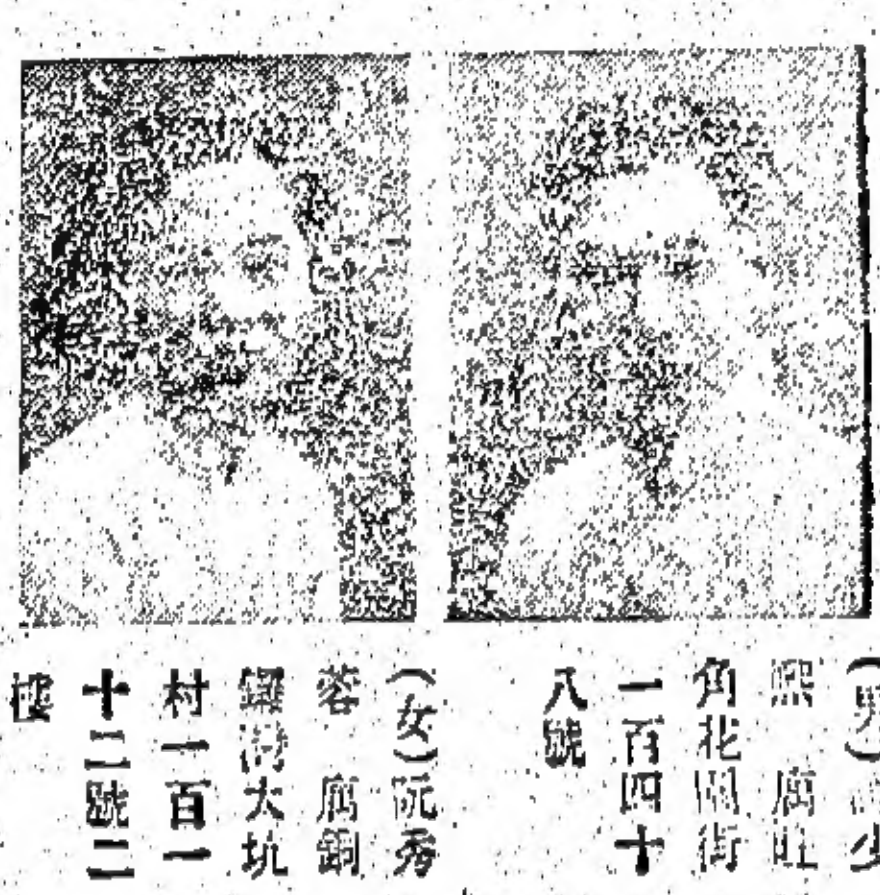 (男)少
熙　寓旺
角花園街
一百四十
八號
(女)阮秀
蓉　寓銅
鑼灣大坑
村一百一
十二號二
樓